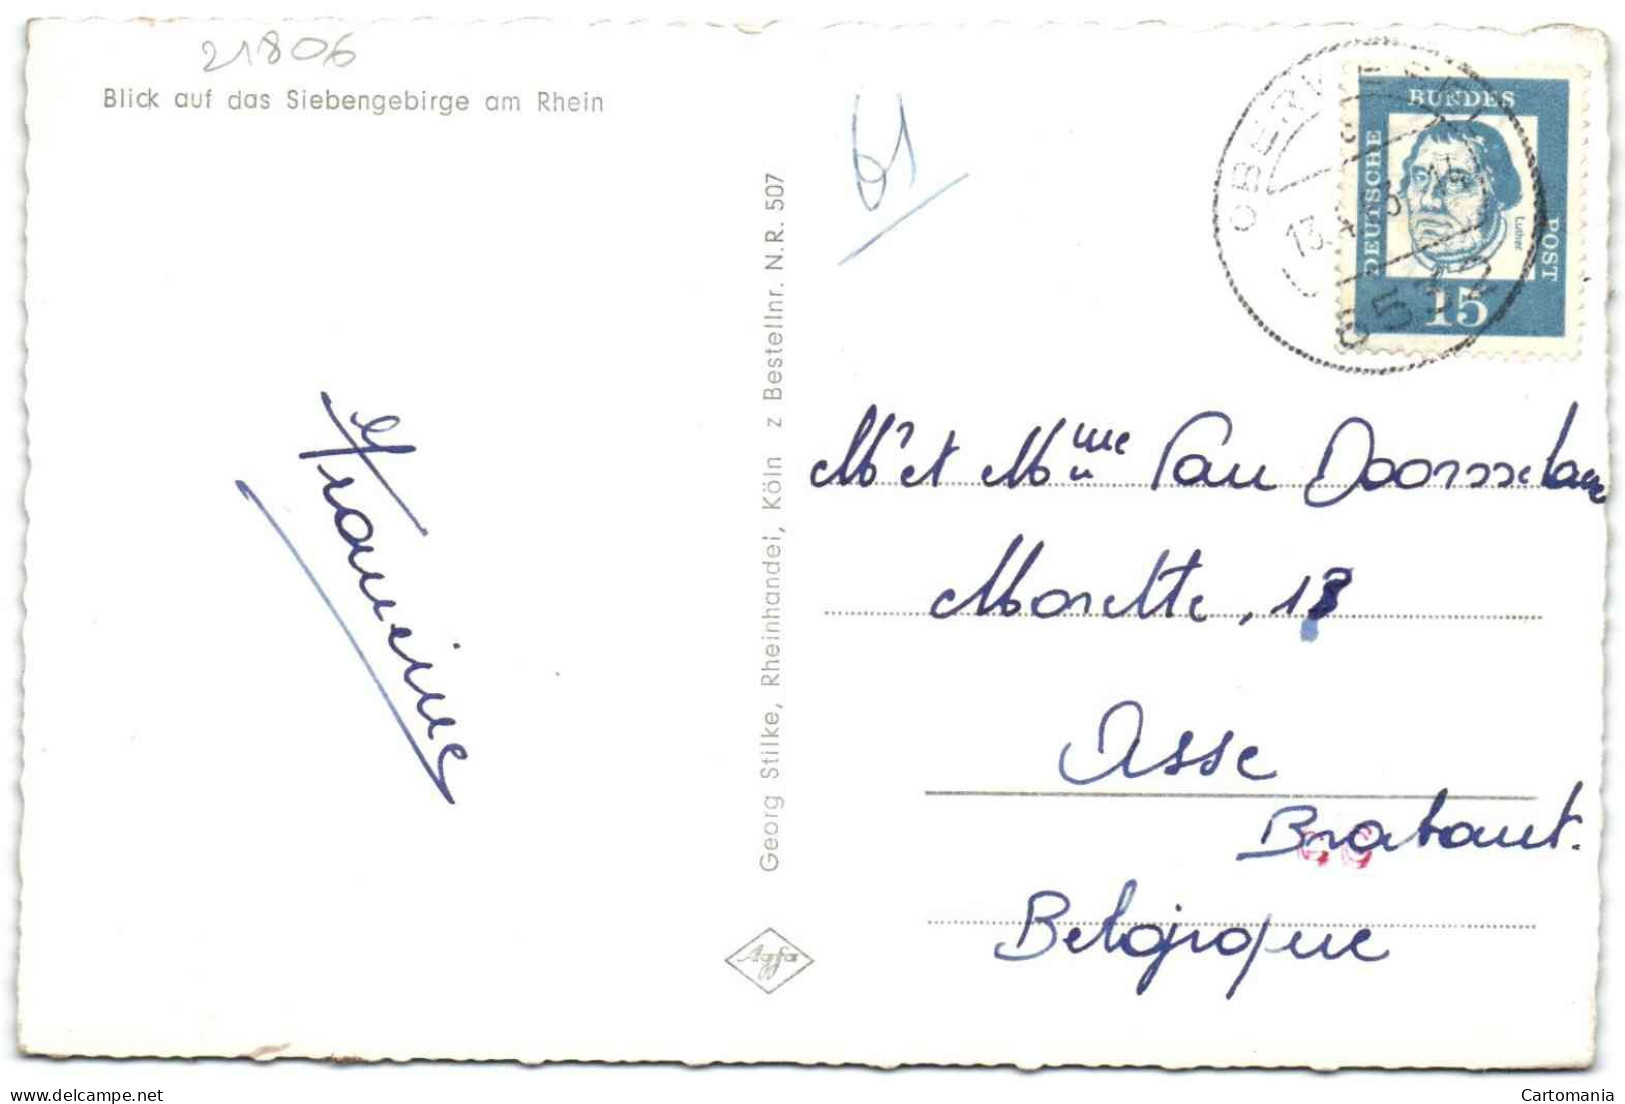 21806
Blick auf das Siebengebirge am Rhein
Francine
Georg Stilke, Rheinhandel, Köln z Bestellnr. N.R. 507
Agfa
61
DEUTSCHE
BUNDES
POST
Luther
15
Mr et Mme Van Doorsselaer
Morette, 13
Asse
Brabant.
Belgique
Cartomania